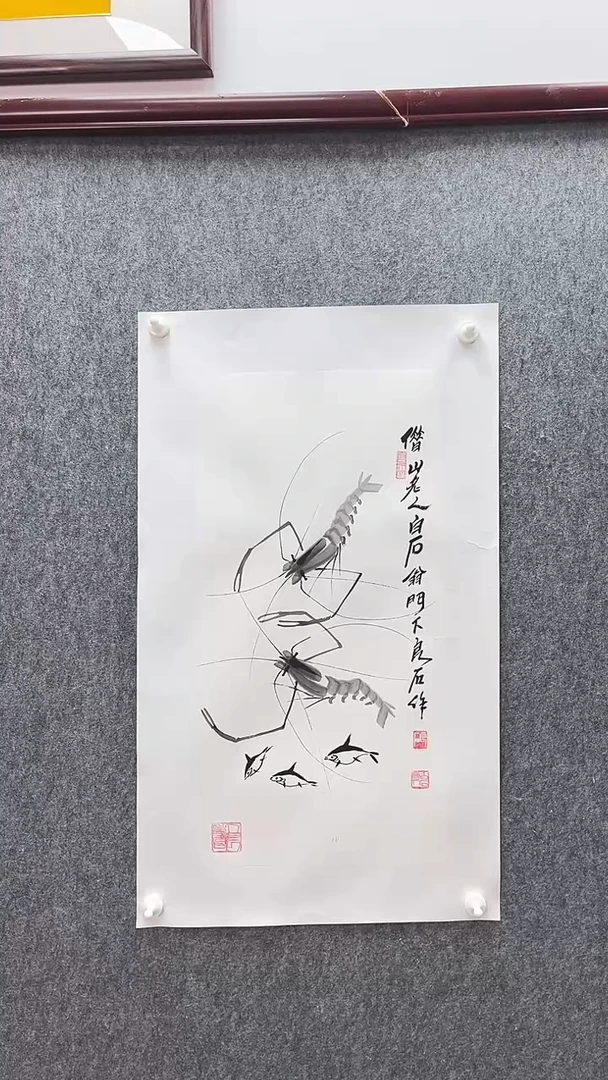 僭山老人白石翁門下良石作